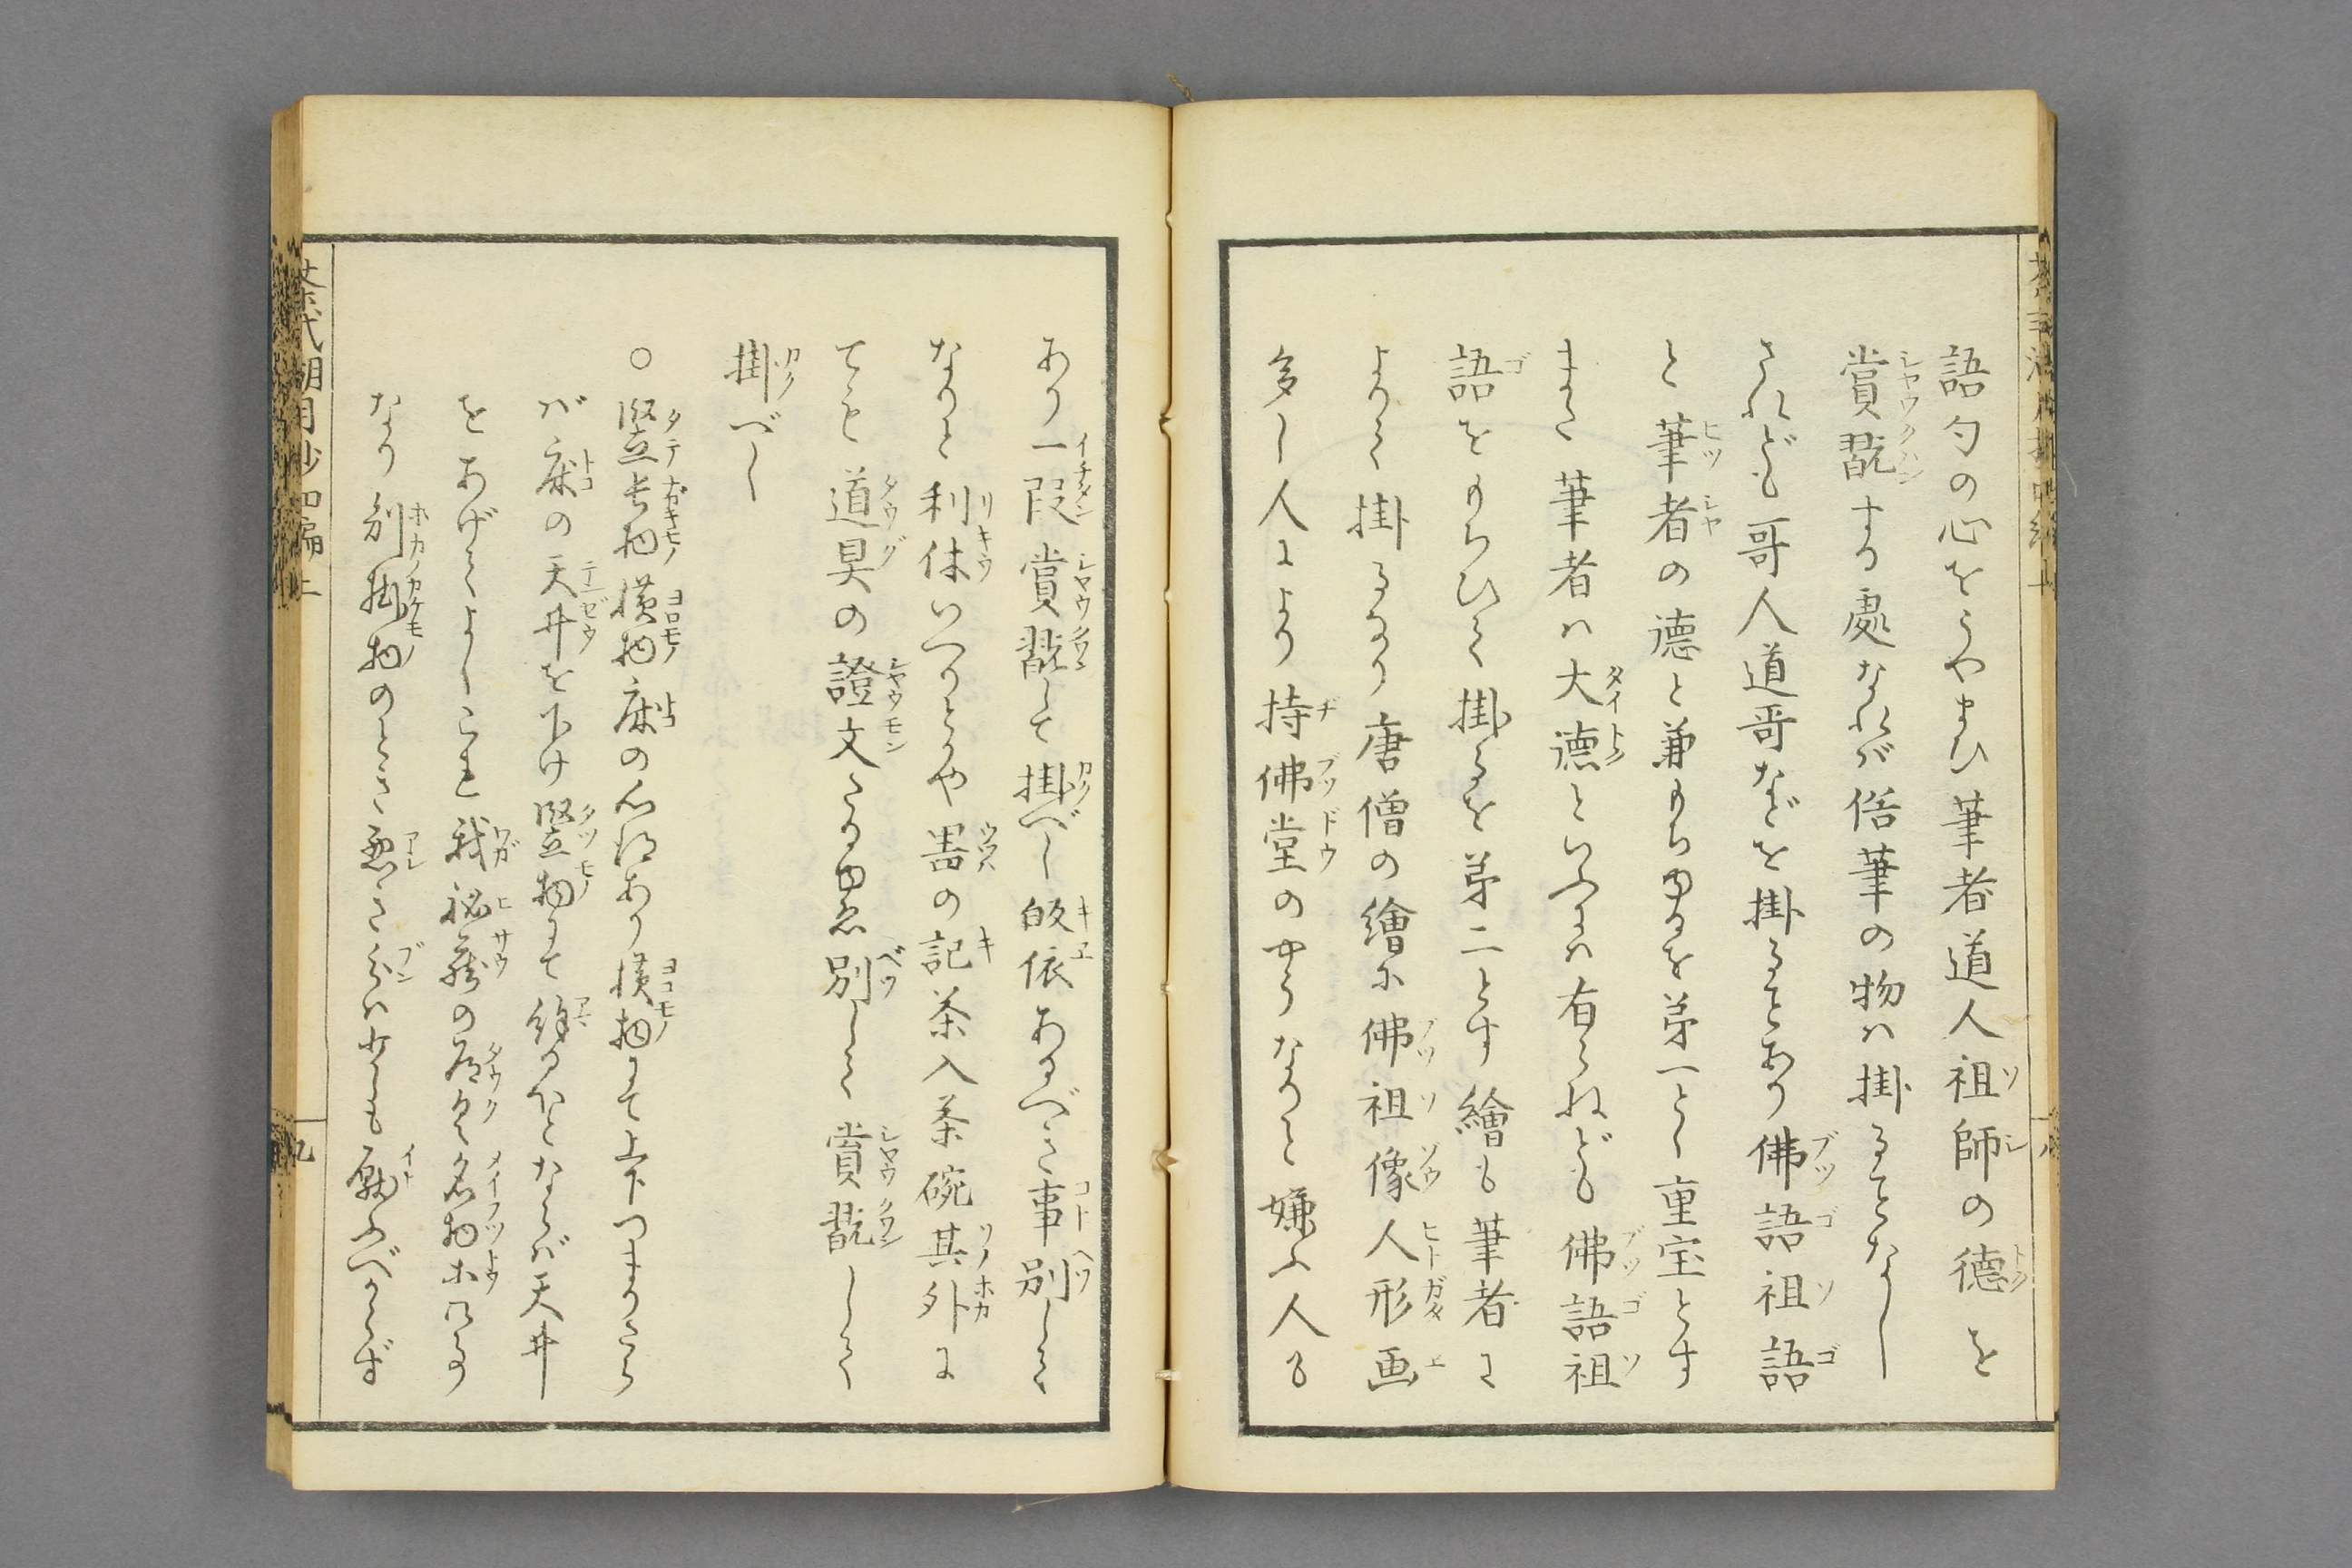 語勾の心をうやまひ筆者道人祖師の徳を
賞翫する処なれバ俗筆の物ハ掛ることなし
されども哥人道哥などを掛ることあり佛語祖語
と筆者の徳と兼もちゆるを第一とし重宝とす
また筆者ハ大徳といふにハ有らねども佛語祖
語をもちひて掛るを第二とす繪も筆者に
よりて掛るなり唐僧の繪に佛祖像人形画
多し人により持佛堂のやうなりと嫌ふ人も
あり一段賞翫して掛べし皈依あるべき事別して
なりと利休いへりとかや器の記茶入茶碗其外に
ても道具の證文たるゆゑ別して賞翫しして
掛べし
○竪長物横物床の心得あり横物にて上下つまりたら
バ床の天井を下け竪物にて餘るほどならバ天井
をあげてよしこれ我秘蔵の道具名物ホにする
なり別掛物のとき悪きぶんハ少しも厭ふべからず
茶式湖月抄 四編上 九